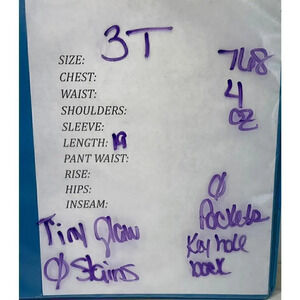 SIZE: 3T
CHEST:
WAIST:
SHOULDERS:
SLEEVE:
LENGTH: 19
PANT WAIST:
RISE:
HIPS:
INSEAM:
4
oz
Ø
Pockets
Key hole
back
Tiny
Ø Stains